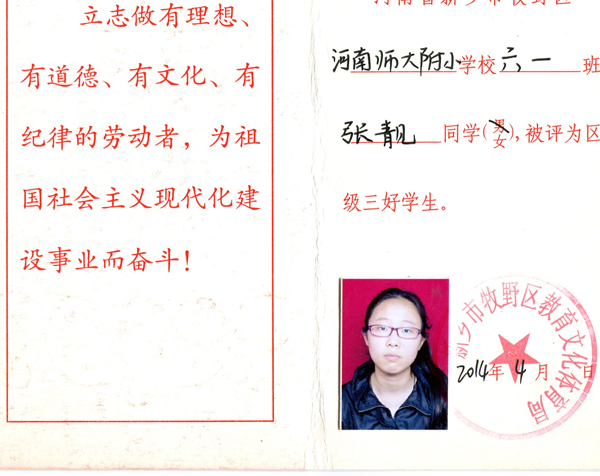 立志做有理想、
有道德、有文化、有
纪律的劳动者，为祖
国社会主义现代化建
设事业而奋斗！
河南省新乡市牧野区
河南师大附小学校六.一班
张靓同学(男女)，被评为区
级三好学生。
新乡市牧野区教育文化体育局
2014年4月 日